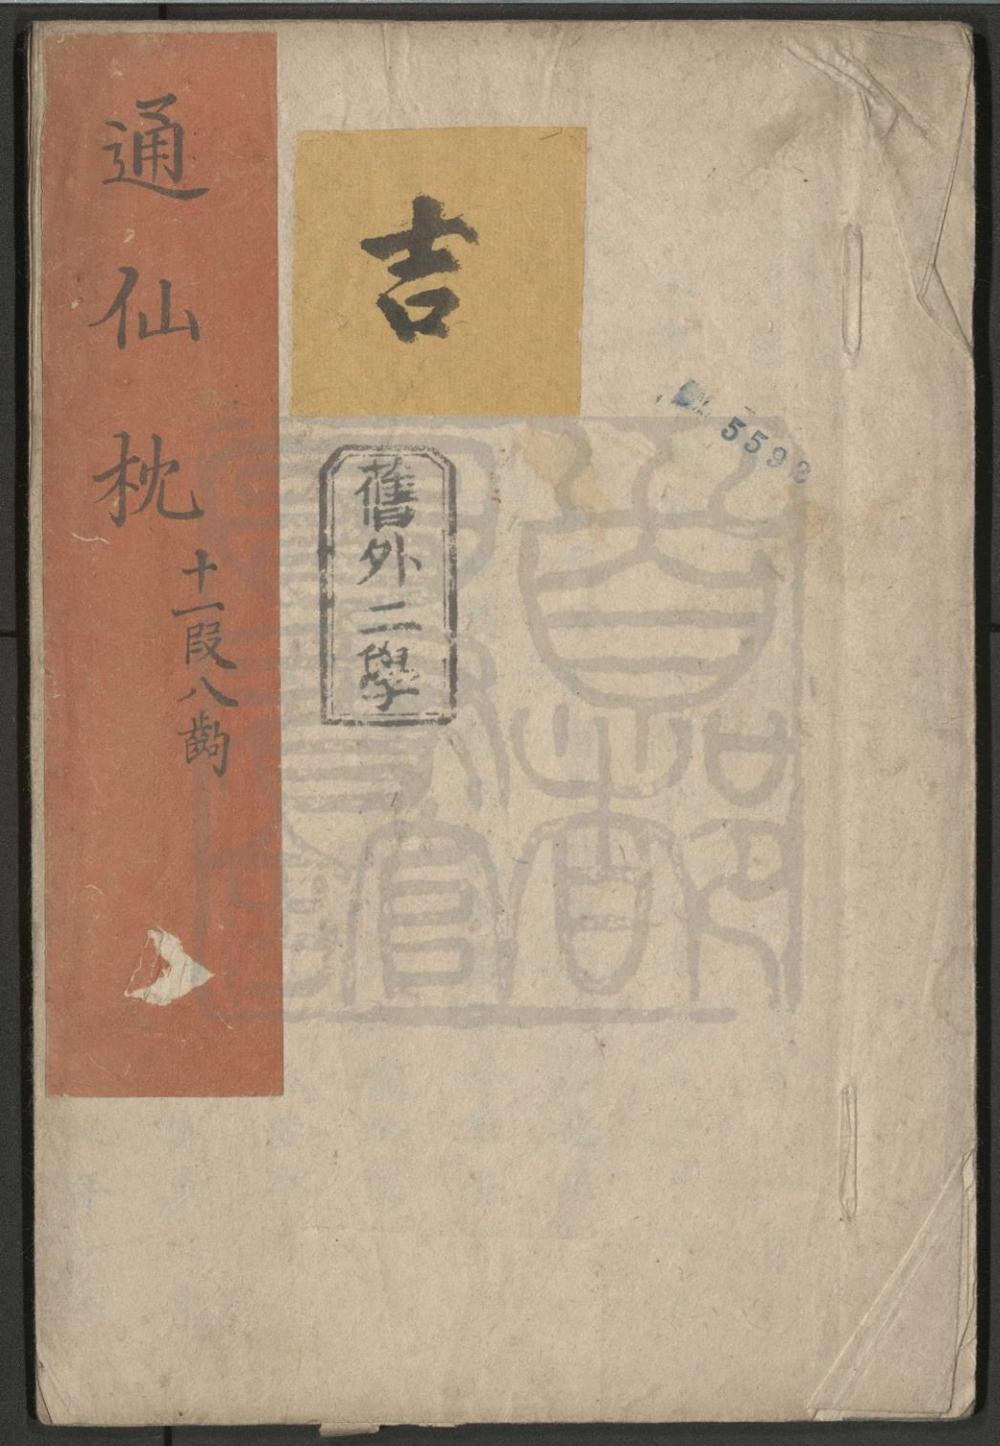 通仙枕
十一段八齣
吉
舊外二學
5598